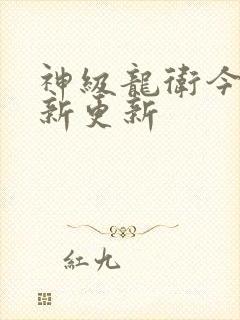 神級龍衛今
新更新
紅九